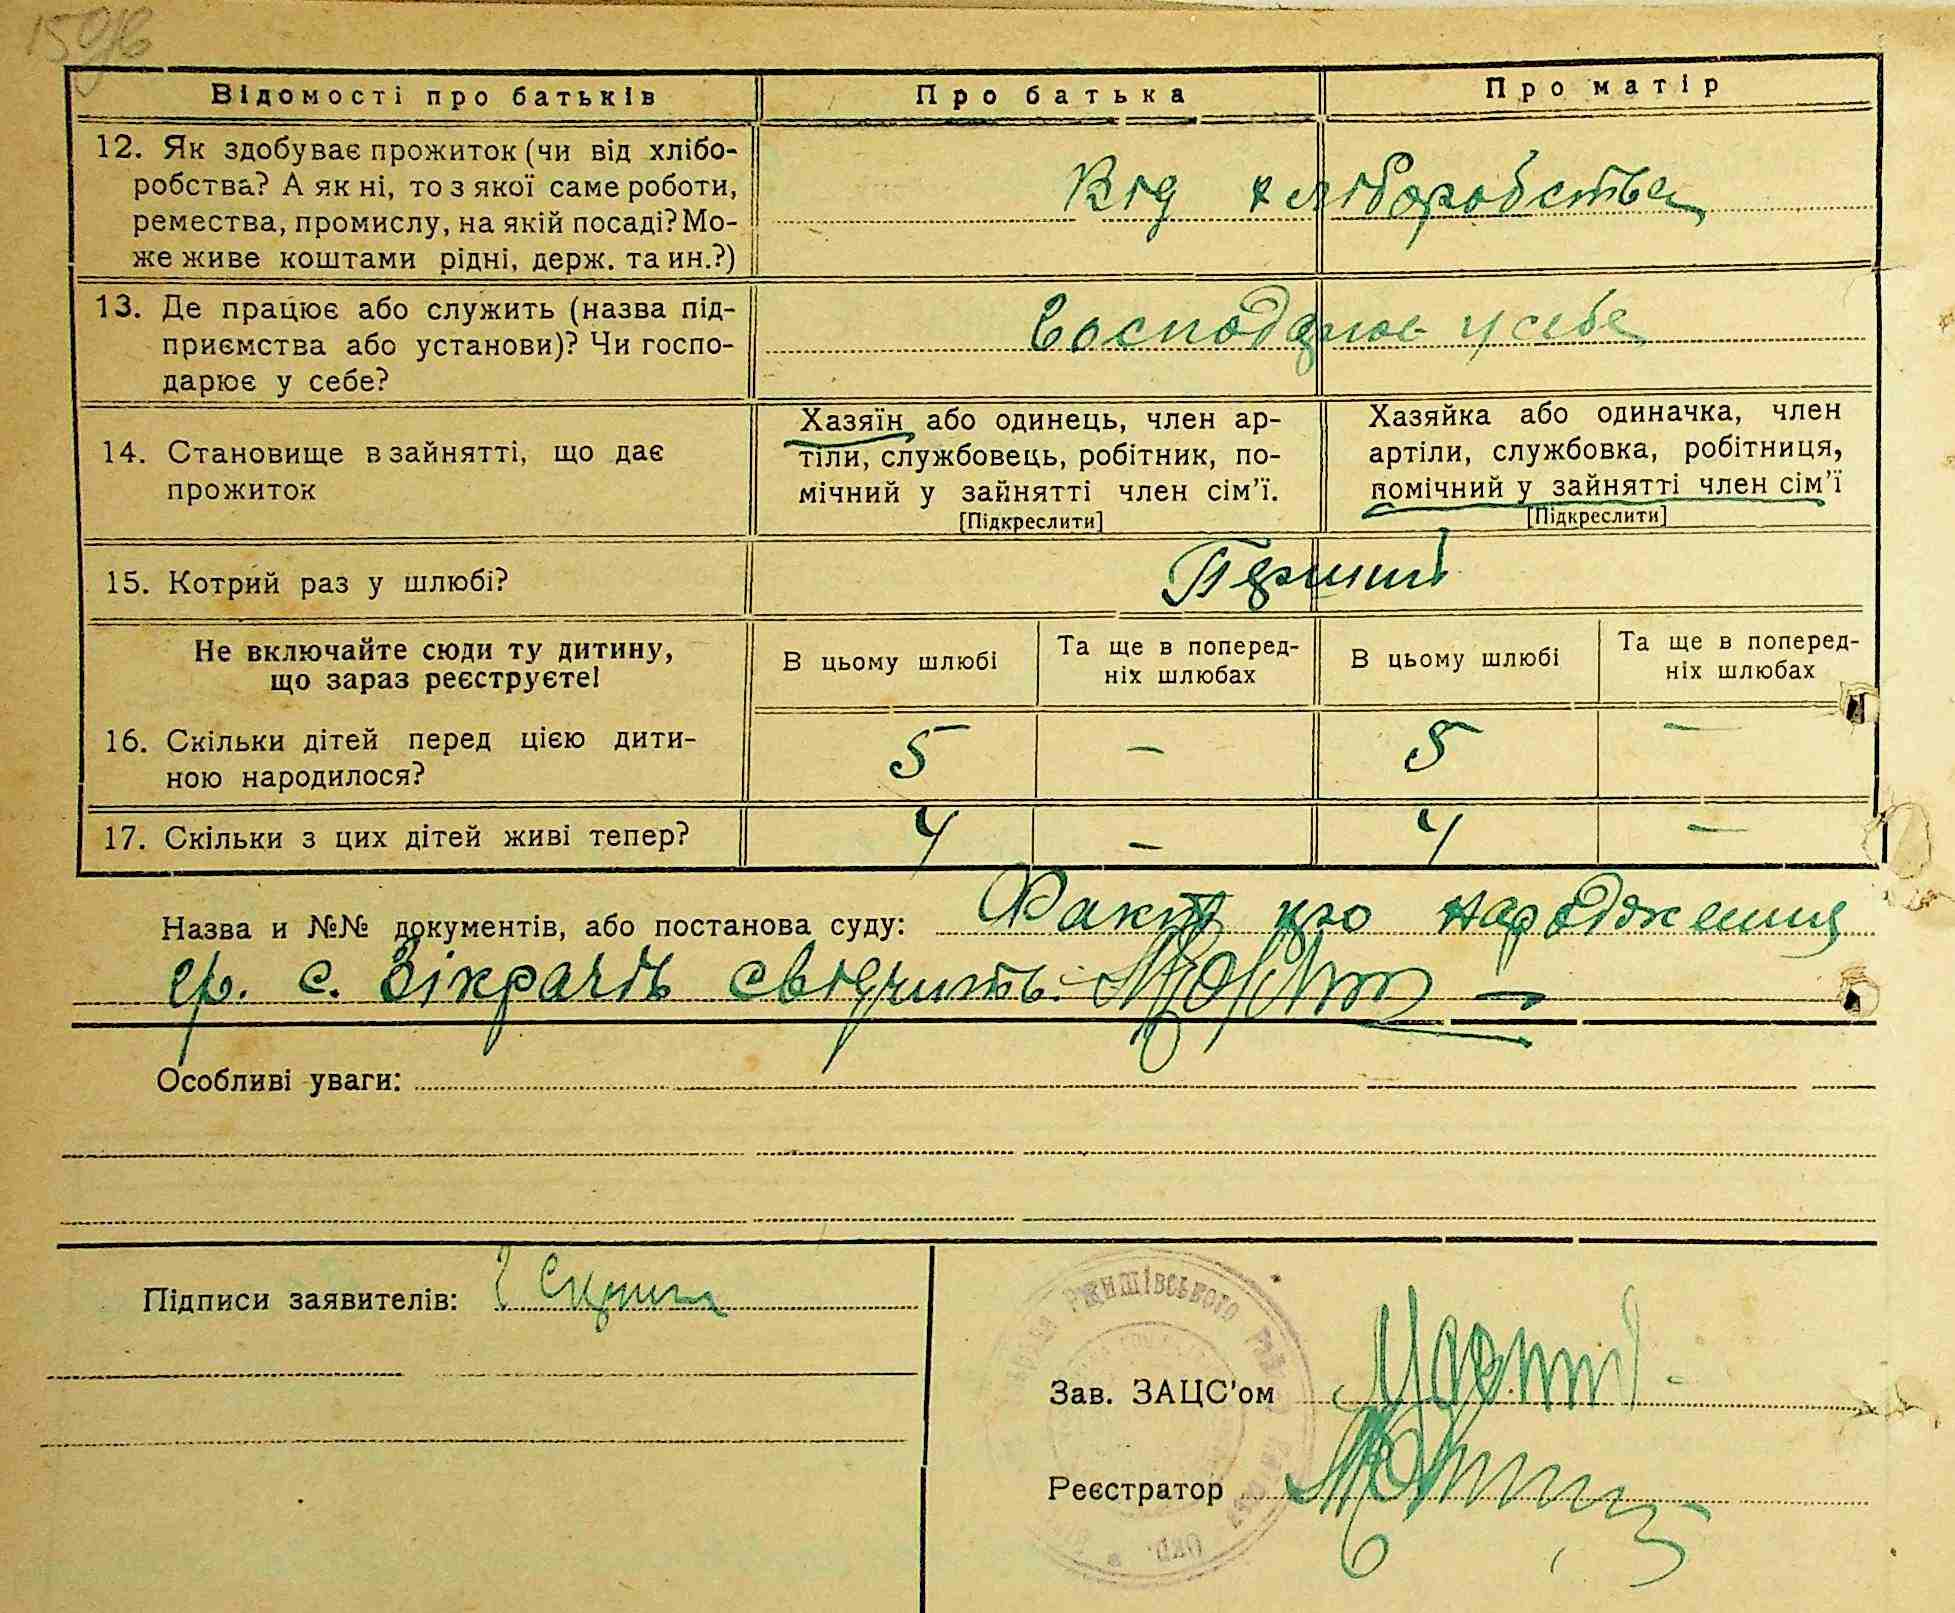 159в
Відомості про батьків
Про батька
Про матір
12. Як здобуває прожиток (чи від хлібо-
робства? А як ні, то з якої саме роботи,
ремества, промислу, на якій посаді? Мо-
же живе коштами рідні, держ. та ин.?)
Від хліборобства
13. Де працює або служить (назва під-
приємства або установи)? Чи госпо-
дарює у себе?
Господарює у себе
14. Становище в зайнятті, що дає
прожиток
Хазяїн або одинець, член ар-
тіли, службовець, робітник, по-
мічний у зайнятті член сім'ї.
[Підкреслити]
Хазяйка або одиначка, член
артіли, службовка, робітниця,
помічний у зайнятті член сім'ї
[Підкреслити]
15. Котрий раз у шлюбі?
Перший
Не включайте сюди ту дитину,
що зараз реєструєте!
В цьому шлюбі
Та ще в поперед-
ніх шлюбах
В цьому шлюбі
Та ще в поперед-
ніх шлюбах
16. Скільки дітей перед цією дити-
ною народилося?
5 – 5 –
17. Скільки з цих дітей живі тепер?
4 – 4 –
Назва и №№ документів, або постанова суду: Факт про народження
гр. с. Зікрачів свідчить:
Особливі уваги:
Підписи заявителів:
Ржищівського
Окр.
Зав. ЗАЦС'ом
Реєстратор